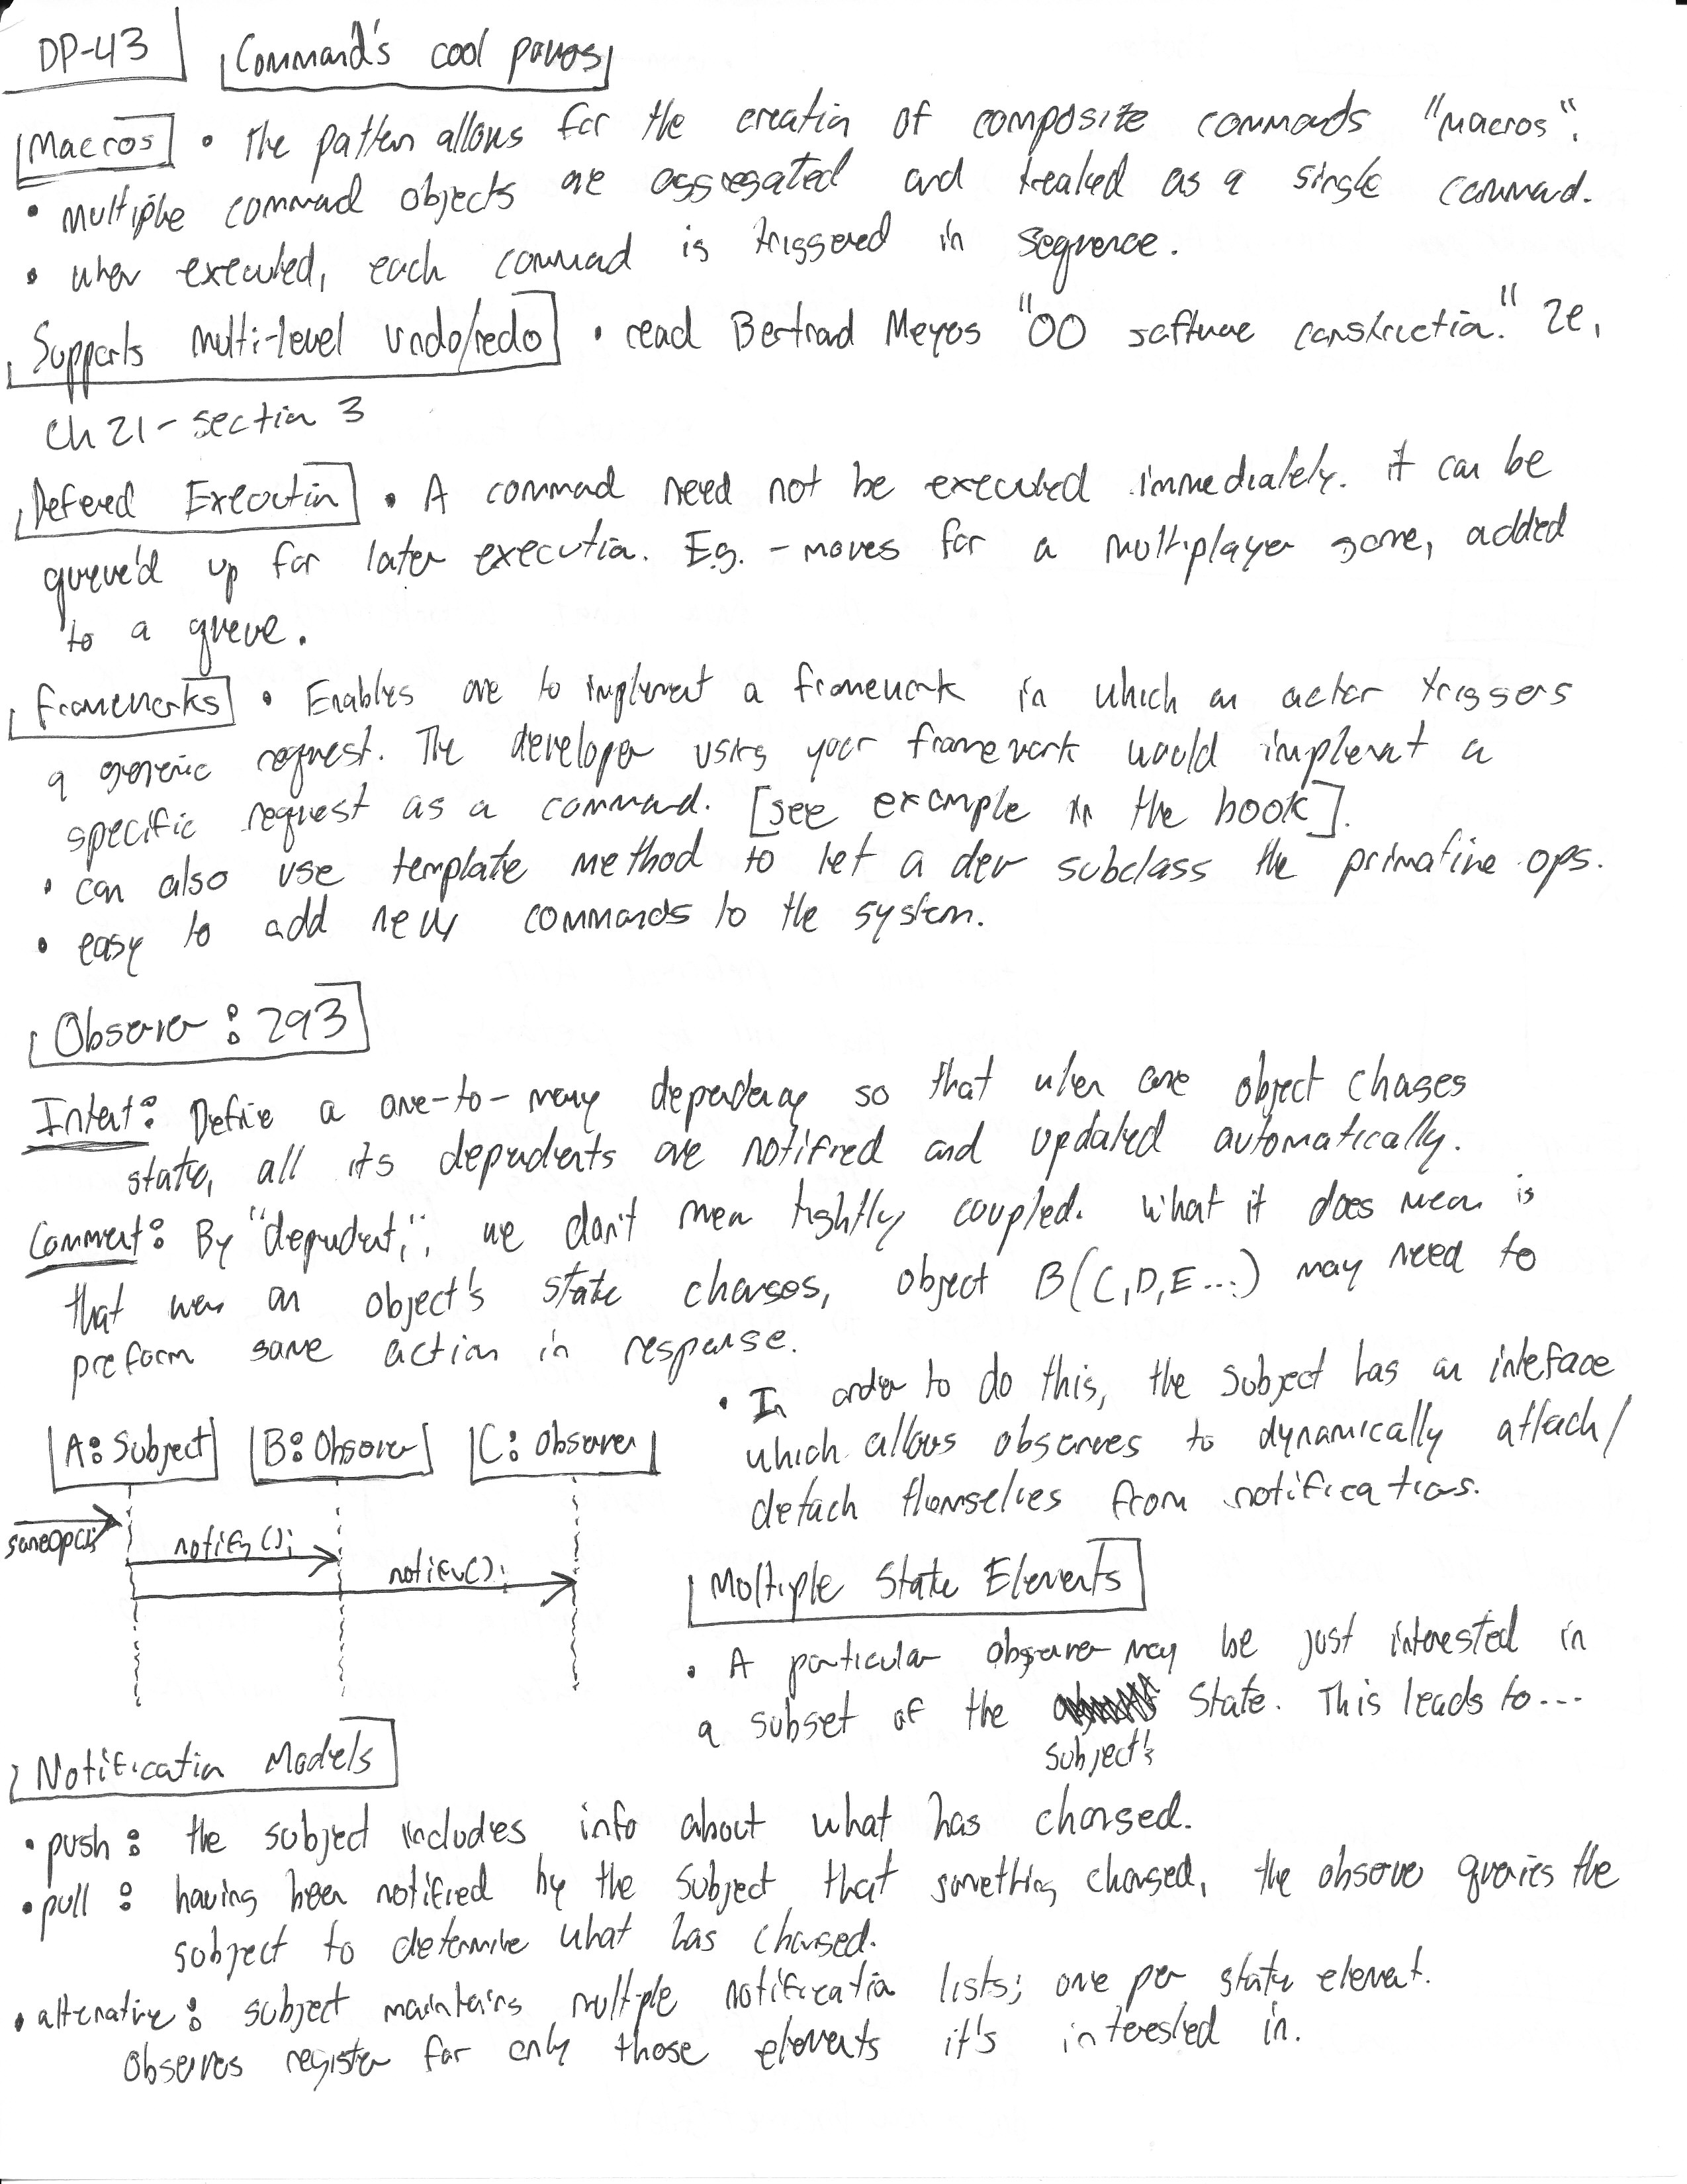 DP-43 Command's cool powers
Macros • The pattern allows for the creation of composite commands "macros".
• multiple command objects are aggregated and treated as a single command.
• when executed, each command is triggered in sequence.
Supports multi-level undo/redo • read Bertrand Meyers "OO software construction." 2e,
Ch 21 - section 3
Defered Execution • A command need not be executed immediately. it can be
queue'd up for later execution. E.g. - moves for a multiplayer game, added
to a queue.
Frameworks • Enables one to implement a framework in which an actor triggers
a generic request. The developer using your framework would implement a
specific request as a command. [see example in the book].
• can also use template method to let a dev subclass the primative ops.
• easy to add new commands to the system.
Observer: 293
Intent: Define a one-to-many dependency so that when one object changes
state, all its dependents are notified and updated automatically.
Comment: By "dependent,", we don't mean tightly coupled. What it does mean is
that when an object's state changes, object B(C,D,E...) may need to
preform some action in response.
• In order to do this, the subject has an interface
which allows observers to dynamically attach/
detach themselves from notifications.
A: Subject B: Observer C: Observer
someOp();
notify();
notify();
Multiple State Elements
• A particular observer may be just interested in
a subset of the subject's State. This leads to...
Notification Models
• push: the subject includes info about what has changed.
• pull: having been notified by the subject that something changed, the observer queries the
subject to determine what has changed.
• alternative: subject maintains multiple notification lists; one per state element.
Observers register for only those elements it's interested in.